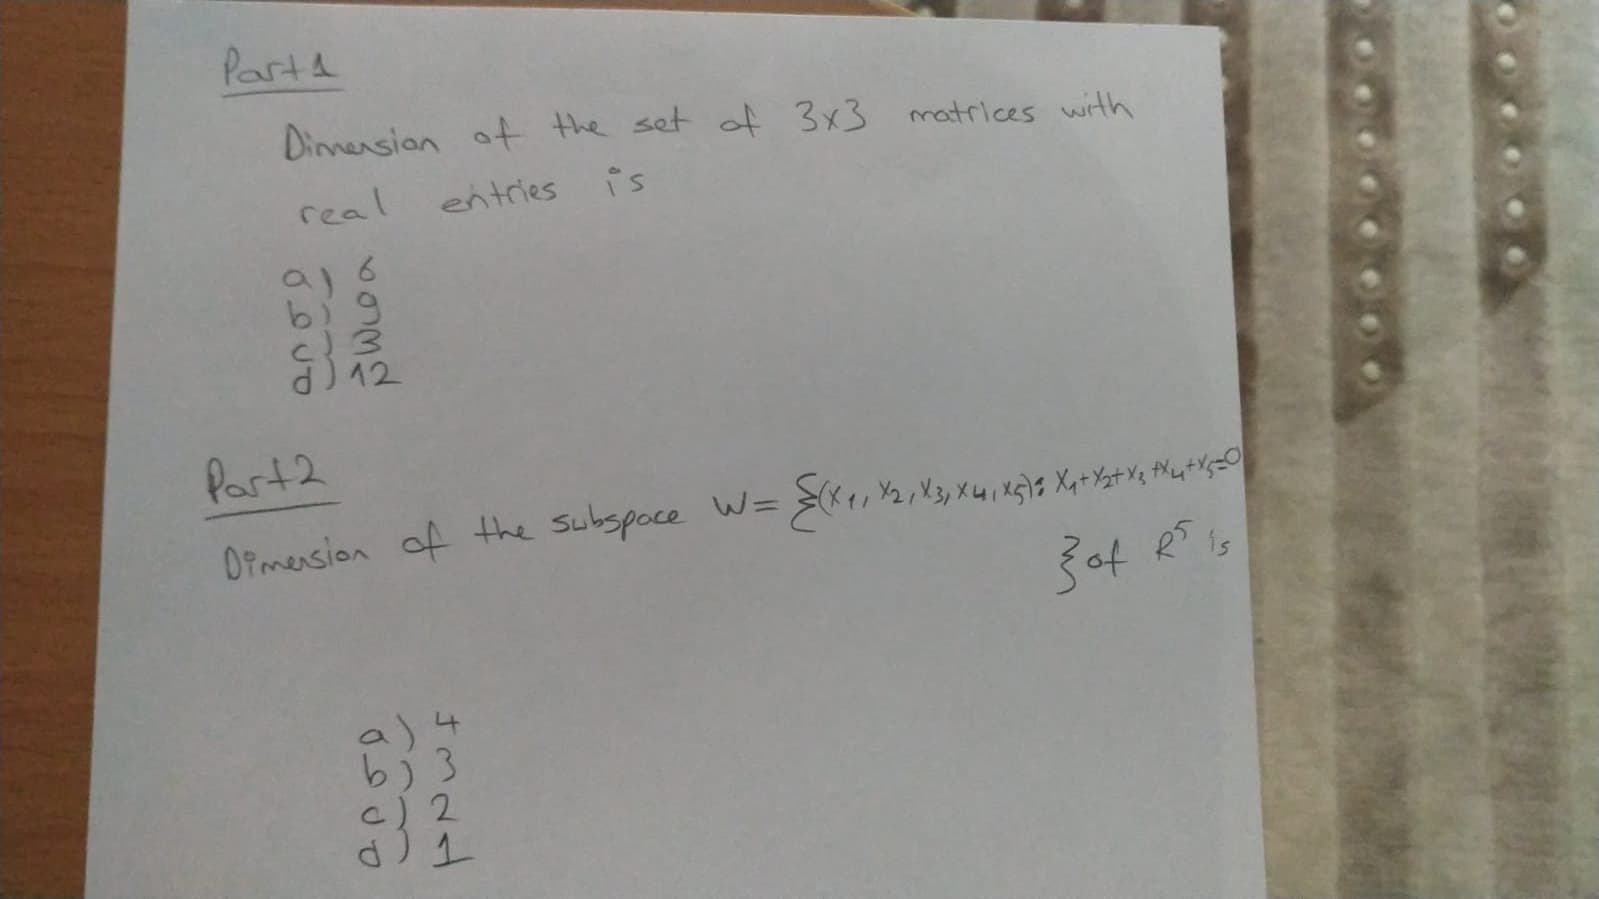 Part 1
Dimension of the set of 3x3 matrices with
real entries is
a) 6
b) 9
c) 3
d) 12
Part 2
Dimension of the subspace W = {(x₁, x₂, x₃, x₄, x₅): x₁+x₂+x₃+x₄+x₅=0
} of R⁵ is
a) 4
b) 3
c) 2
d) 1